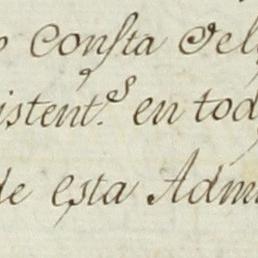 Consta del
istent.s en tod
de esta Admi